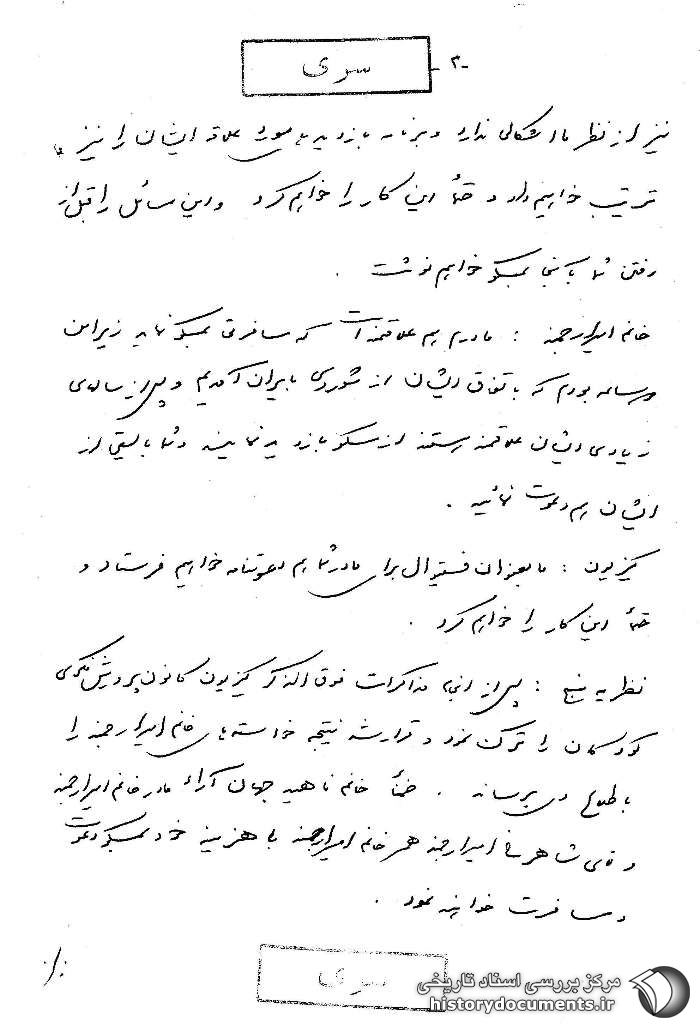 -۳-
سری
نیز از نظر ما اشکالی ندارد و برنامه بازدید های مورد علاقه ایشان را نیز
ترتیب خواهیم داد و حتماً این کار را خواهم کرد و این مسائل را قبل از
رفتن شما به آنجا بمسکو خواهم نوشت .
خانم امیرارجمند : مادرم هم علاقمند است که مسافرتی بمسکو نماید زیرا من
۳ ساله بودم که باتفاق ایشان از شوروی بایران آمدیم و پس از سالهای
زیادی ایشان علاقمند هستند از مسکو بازدید نمایند و شما بایستی از
ایشان هم دعوت نمائید .
کیزیون : ما بعنوان فستیوال برای مادر شما هم دعوتنامه خواهیم فرستاد و
حتماً این کار را خواهم کرد .
نظریه منبع : پس از انجام مذاکرات فوق الذکر کیزیون کانون پرورش فکری
کودکان را ترک نمود و قرار شد نتیجه خواسته های خانم امیرارجمند را
باطلاع وی برساند . ضمناً خانم ناهید جهان آراء مادر خانم امیرارجمند
و آقای شاهرخ امیرارجمند همسر خانم امیرارجمند با هزینه خود بمسکو دعوت
و مسافرت خواهند نمود .
سری
مرکز بررسی اسناد تاریخی
historydocuments.ir